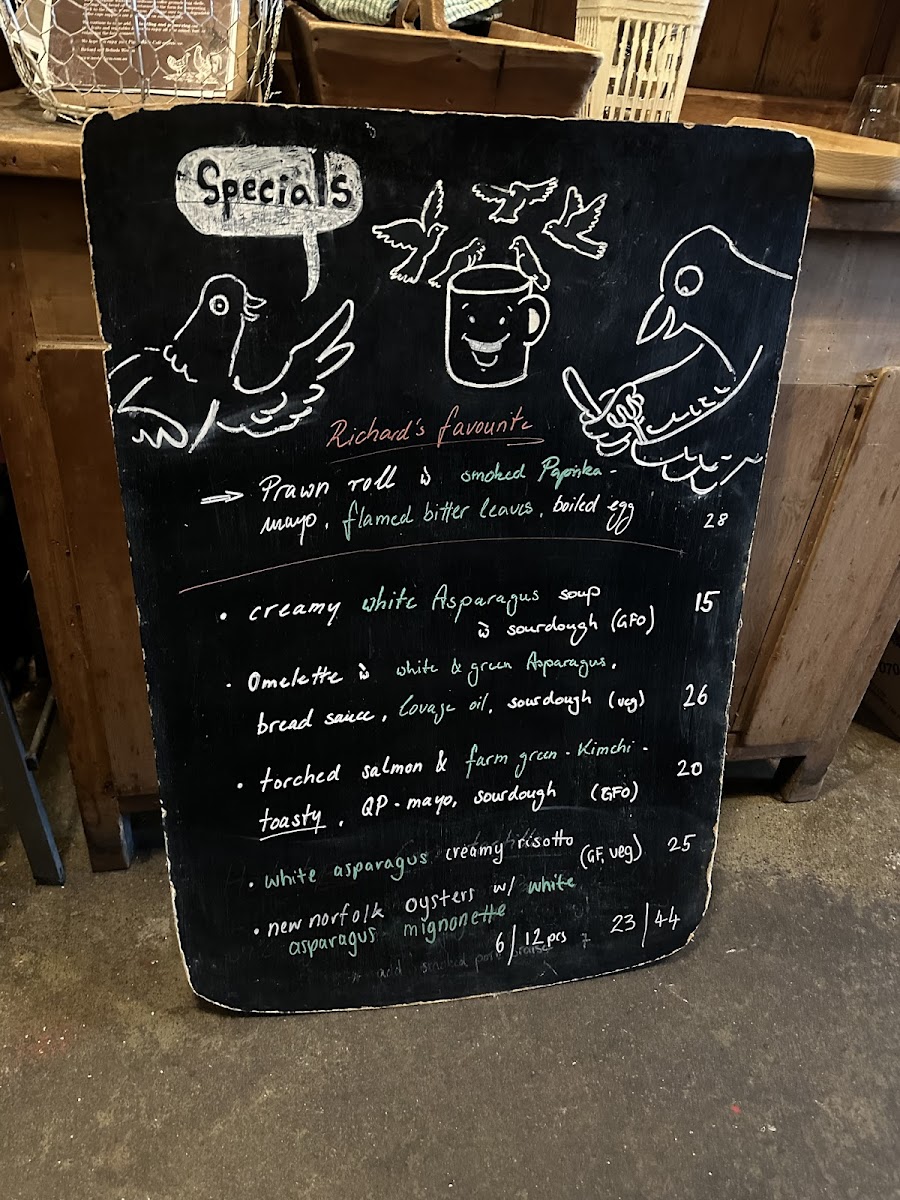 Specials
Richard's favourite
⇒ Prawn roll w̄ smoked Paprika -
mayo, flamed bitter leaves, boiled egg 28
• creamy white Asparagus soup 15
w̄ sourdough (GFO)
• Omelette w̄ white & green Asparagus,
bread sauce, lovage oil, sourdough (veg) 26
• torched salmon & farm green - Kimchi - 20
toasty, QP - mayo, sourdough (GFO)
• white asparagus creamy risotto (GF, veg) 25
• new norfolk oysters w/ white
asparagus mignonette
6 / 12 pcs 23 / 44
add smoked